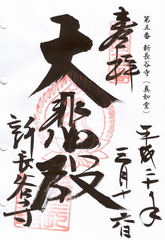 第五番 新長谷寺(真如堂)
奉拝
平成二十年
三月十六日
大悲殿
新長谷寺